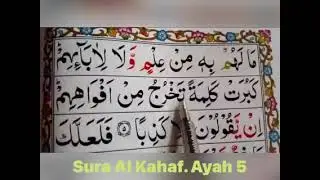 مَا لَهُمْ بِهٖ مِنْ عِلْمٍ وَّلَا لِاٰبَآئِهِمْ
كَبُرَتْ كَلِمَةً تَخْرُجُ مِنْ اَفْوَاهِهِمْ
اِنْ يَّقُوْلُوْنَ كَذِبًا ۝٥ فَلَعَلَّكَ
Sura Al Kahaf. Ayah 5